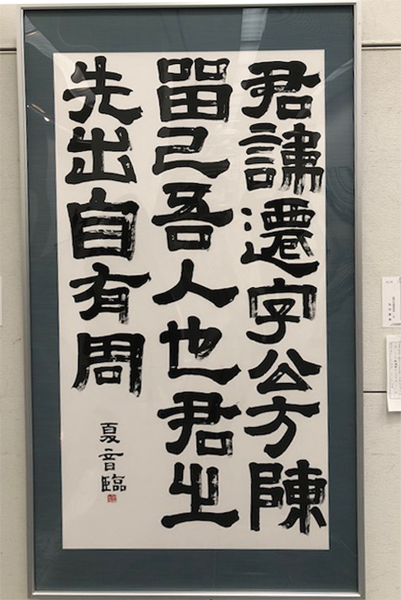 君諱遷字公方陳
留己吾人也君之
先出自有周
夏音臨